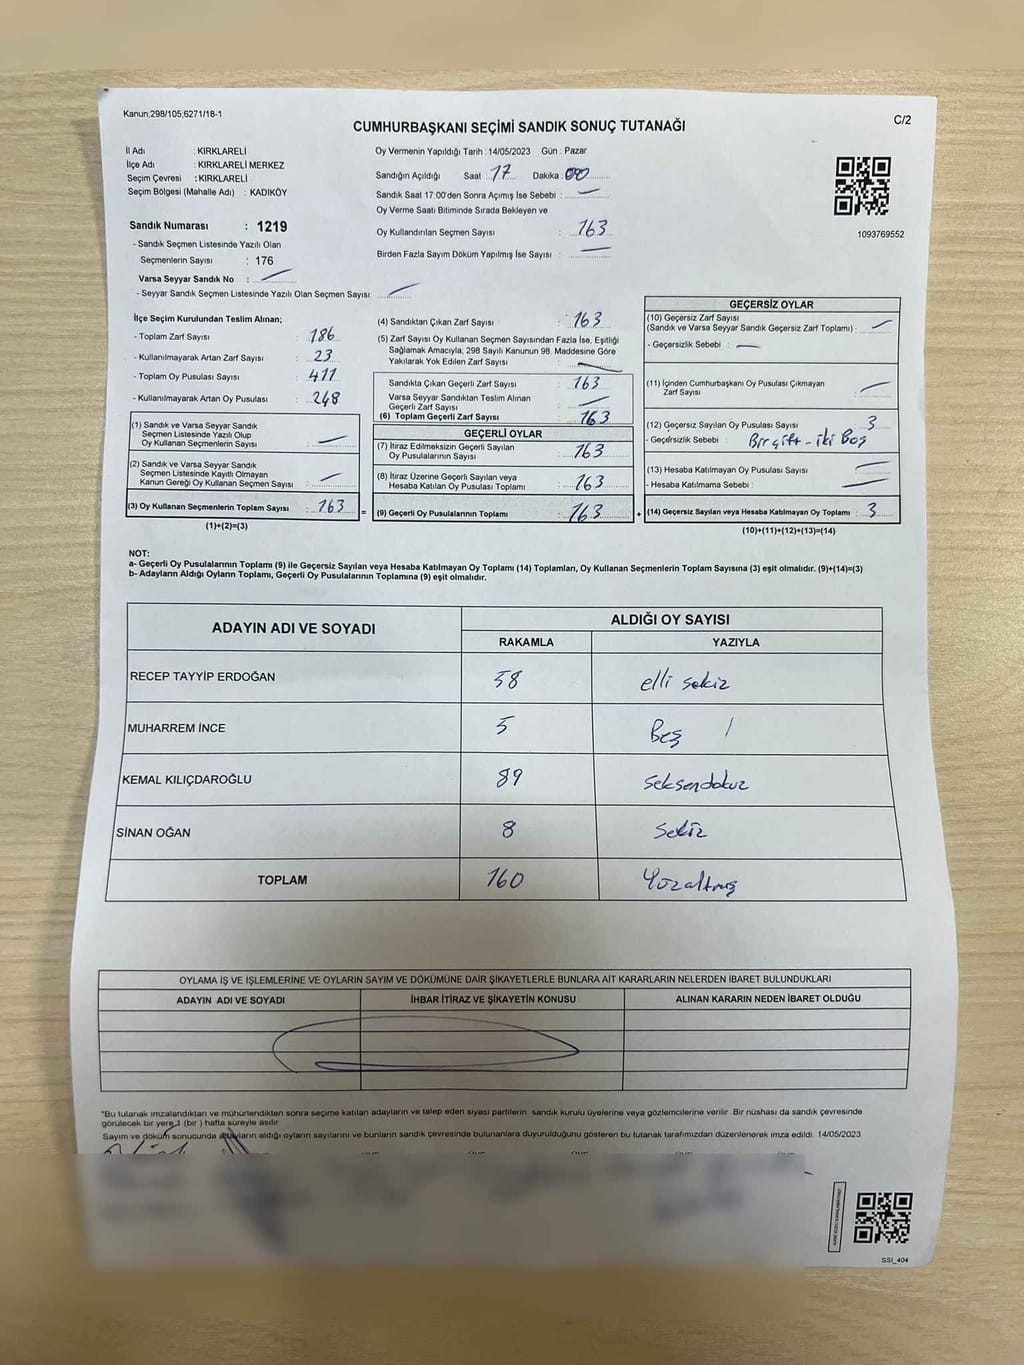 Kanun;298/105;6271/18-1
C/2
CUMHURBAŞKANI SEÇİMİ SANDIK SONUÇ TUTANAĞI
İl Adı : KIRKLARELİ
İlçe Adı : KIRKLARELİ MERKEZ
Seçim Çevresi : KIRKLARELİ
Seçim Bölgesi (Mahalle Adı) : KADIKÖY
Sandık Numarası : 1219
- Sandık Seçmen Listesinde Yazılı Olan
Seçmenlerin Sayısı : 176
Varsa Seyyar Sandık No :
- Seyyar Sandık Seçmen Listesinde Yazılı Olan Seçmen Sayısı:
Oy Vermenin Yapıldığı Tarih : 14/05/2023 Gün : Pazar
Sandığın Açıldığı Saat : 17 Dakika : 00
Sandık Saat 17:00'den Sonra Açımış İse Sebebi :
Oy Verme Saati Bitiminde Sırada Bekleyen ve
Oy Kullandırılan Seçmen Sayısı : 163
Birden Fazla Sayım Döküm Yapılmış İse Sayısı :
1093769552
İlçe Seçim Kurulundan Teslim Alınan;
- Toplam Zarf Sayısı : 186
- Kullanılmayarak Artan Zarf Sayısı : 23
- Toplam Oy Pusulası Sayısı : 411
- Kullanılmayarak Artan Oy Pusulası : 248
(1) Sandık ve Varsa Seyyar Sandık
Seçmen Listesinde Yazılı Olup
Oy Kullanan Seçmenlerin Sayısı :
(2) Sandık ve Varsa Seyyar Sandık
Seçmen Listesinde Kayıtlı Olmayan
Kanun Gereği Oy Kullanan Seçmen Sayısı :
(3) Oy Kullanan Seçmenlerin Toplam Sayısı : 163 =
(1)+(2)=(3)
(4) Sandıktan Çıkan Zarf Sayısı : 163
(5) Zarf Sayısı Oy Kullanan Seçmen Sayısından Fazla İse, Eşitliği
Sağlamak Amacıyla, 298 Sayılı Kanunun 98. Maddesine Göre
Yakılarak Yok Edilen Zarf Sayısı :
Sandıkta Çıkan Geçerli Zarf Sayısı : 163
Varsa Seyyar Sandıktan Teslim Alınan
Geçerli Zarf Sayısı :
(6) Toplam Geçerli Zarf Sayısı : 163
GEÇERLİ OYLAR
(7) İtiraz Edilmeksizin Geçerli Sayılan
Oy Pusulalarının Sayısı : 163
(8) İtiraz Üzerine Geçerli Sayılan veya
Hesaba Katılan Oy Pusulası Toplamı : 163
(9) Geçerli Oy Pusulalarının Toplamı : 163 +
GEÇERSİZ OYLAR
(10) Geçersiz Zarf Sayısı
(Sandık ve Varsa Seyyar Sandık Geçersiz Zarf Toplamı) :
- Geçersizlik Sebebi :
(11) İçinden Cumhurbaşkanı Oy Pusulası Çıkmayan
Zarf Sayısı :
(12) Geçersiz Sayılan Oy Pusulası Sayısı : 3
- Geçersizlik Sebebi : Bir çift - iki Boş
(13) Hesaba Katılmayan Oy Pusulası Sayısı :
- Hesaba Katılmama Sebebi :
(14) Geçersiz Sayılan veya Hesaba Katılmayan Oy Toplamı : 3
(10)+(11)+(12)+(13)=(14)
NOT:
a- Geçerli Oy Pusulalarının Toplamı (9) ile Geçersiz Sayılan veya Hesaba Katılmayan Oy Toplamı (14) Toplamları, Oy Kullanan Seçmenlerin Toplam Sayısına (3) eşit olmalıdır. (9)+(14)=(3)
b- Adayların Aldığı Oyların Toplamı, Geçerli Oy Pusulalarının Toplamına (9) eşit olmalıdır.
ADAYIN ADI VE SOYADI ALDIĞI OY SAYISI
RAKAMLA YAZIYLA
RECEP TAYYİP ERDOĞAN 58 elli sekiz
MUHARREM İNCE 5 Beş
KEMAL KILIÇDAROĞLU 89 seksendokuz
SİNAN OĞAN 8 sekiz
TOPLAM 160 Yüzaltmış
OYLAMA İŞ VE İŞLEMLERİNE VE OYLARIN SAYIM VE DÖKÜMÜNE DAİR ŞİKAYETLERLE BUNLARA AİT KARARLARIN NELERDEN İBARET BULUNDUKLARI
ADAYIN ADI VE SOYADI İHBAR İTİRAZ VE ŞİKAYETİN KONUSU ALINAN KARARIN NEDEN İBARET OLDUĞU
*Bu tutanak imzalandıktan ve mühürlendikten sonra seçime katılan adayların ve talep eden siyasi partilerin sandık kurulu üyelerine veya gözlemcilerine verilir .Bir nüshası da sandık çevresinde
görülecek bir yere 1 (bir ) hafta süreyle asılır.
Sayım ve döküm sonucunda adayların aldığı oyların sayılarını ve bunların sandık çevresinde bulunanlara duyurulduğunu gösteren bu tutanak tarafımızdan düzenlenerek imza edildi. 14/05/2023
SSI_404